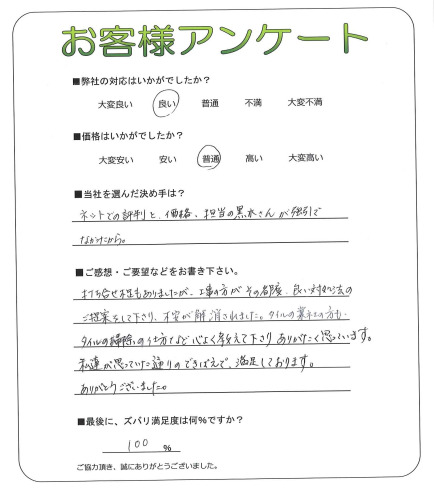 お客様アンケート
■弊社の対応はいかがでしたか？
大変良い　良い　普通　不満　大変不満
■価格はいかがでしたか？
大変安い　安い　普通　高い　大変高い
■当社を選んだ決め手は？
ネットでの評判と、価格、担当の黒水さんが強引で
なかったから。
■ご感想・ご要望などをお書き下さい。
打ち合せ不足もありましたが、工事の方がその都度、良い対処法の
ご提案をして下さり、不安が解消されました。タイルの業社の方も、
タイルの掃除の仕方など心よく教えて下さりありがたく思っています。
私達が思っていた通りのできばえで、満足しております。
ありがとうございました。
■最後に、ズバリ満足度は何%ですか？
100 %
ご協力頂き、誠にありがとうございました。